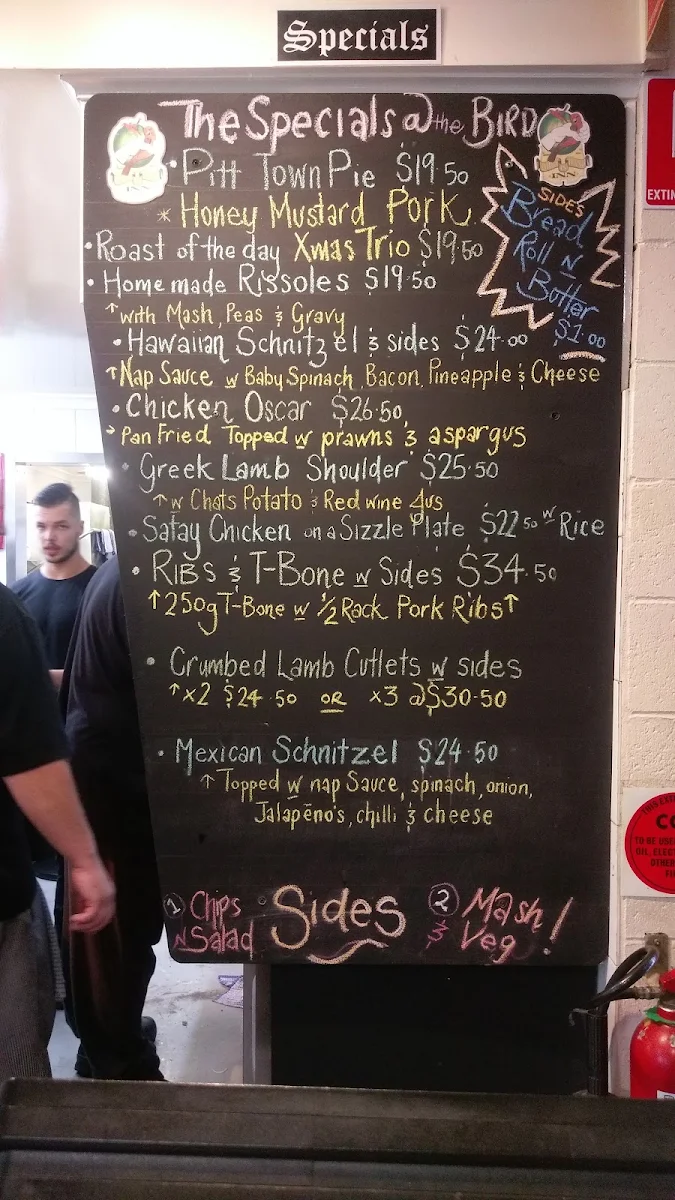 Specials
The Specials @ the BIRD
• Pitt Town Pie $19.50
* Honey Mustard Pork
• Roast of the day Xmas Trio $19.50
• Home made Rissoles $19.50
↑ with Mash, Peas & Gravy
• Hawaiian Schnitzel & sides $24.00
↑ Nap Sauce w Baby Spinach, Bacon, Pineapple & Cheese
• Chicken Oscar $26.50
Pan Fried Topped w prawns & aspargus
• Greek Lamb Shoulder $25.50
↑ w Chats Potato & Red wine Jus
• Satay Chicken on a Sizzle Plate $22.50 w Rice
• RIBS & T-Bone w Sides $34.50
↑ 250g T-Bone w 1/2 Rack Pork Ribs ↑
• Crumbed Lamb Cutlets w sides
↑ x2 $24.50 OR x3 @ $30.50
• Mexican Schnitzel $24.50
↑ Topped w nap Sauce, spinach, onion,
Jalapēno's, chilli & cheese
SIDES
Bread
Roll N
Butter
$1.00
Sides
1 Chips
N Salad
2 Mash
& Veg!
INN
EXTIN
TO BE USE
OIL, ELECT
OTHER